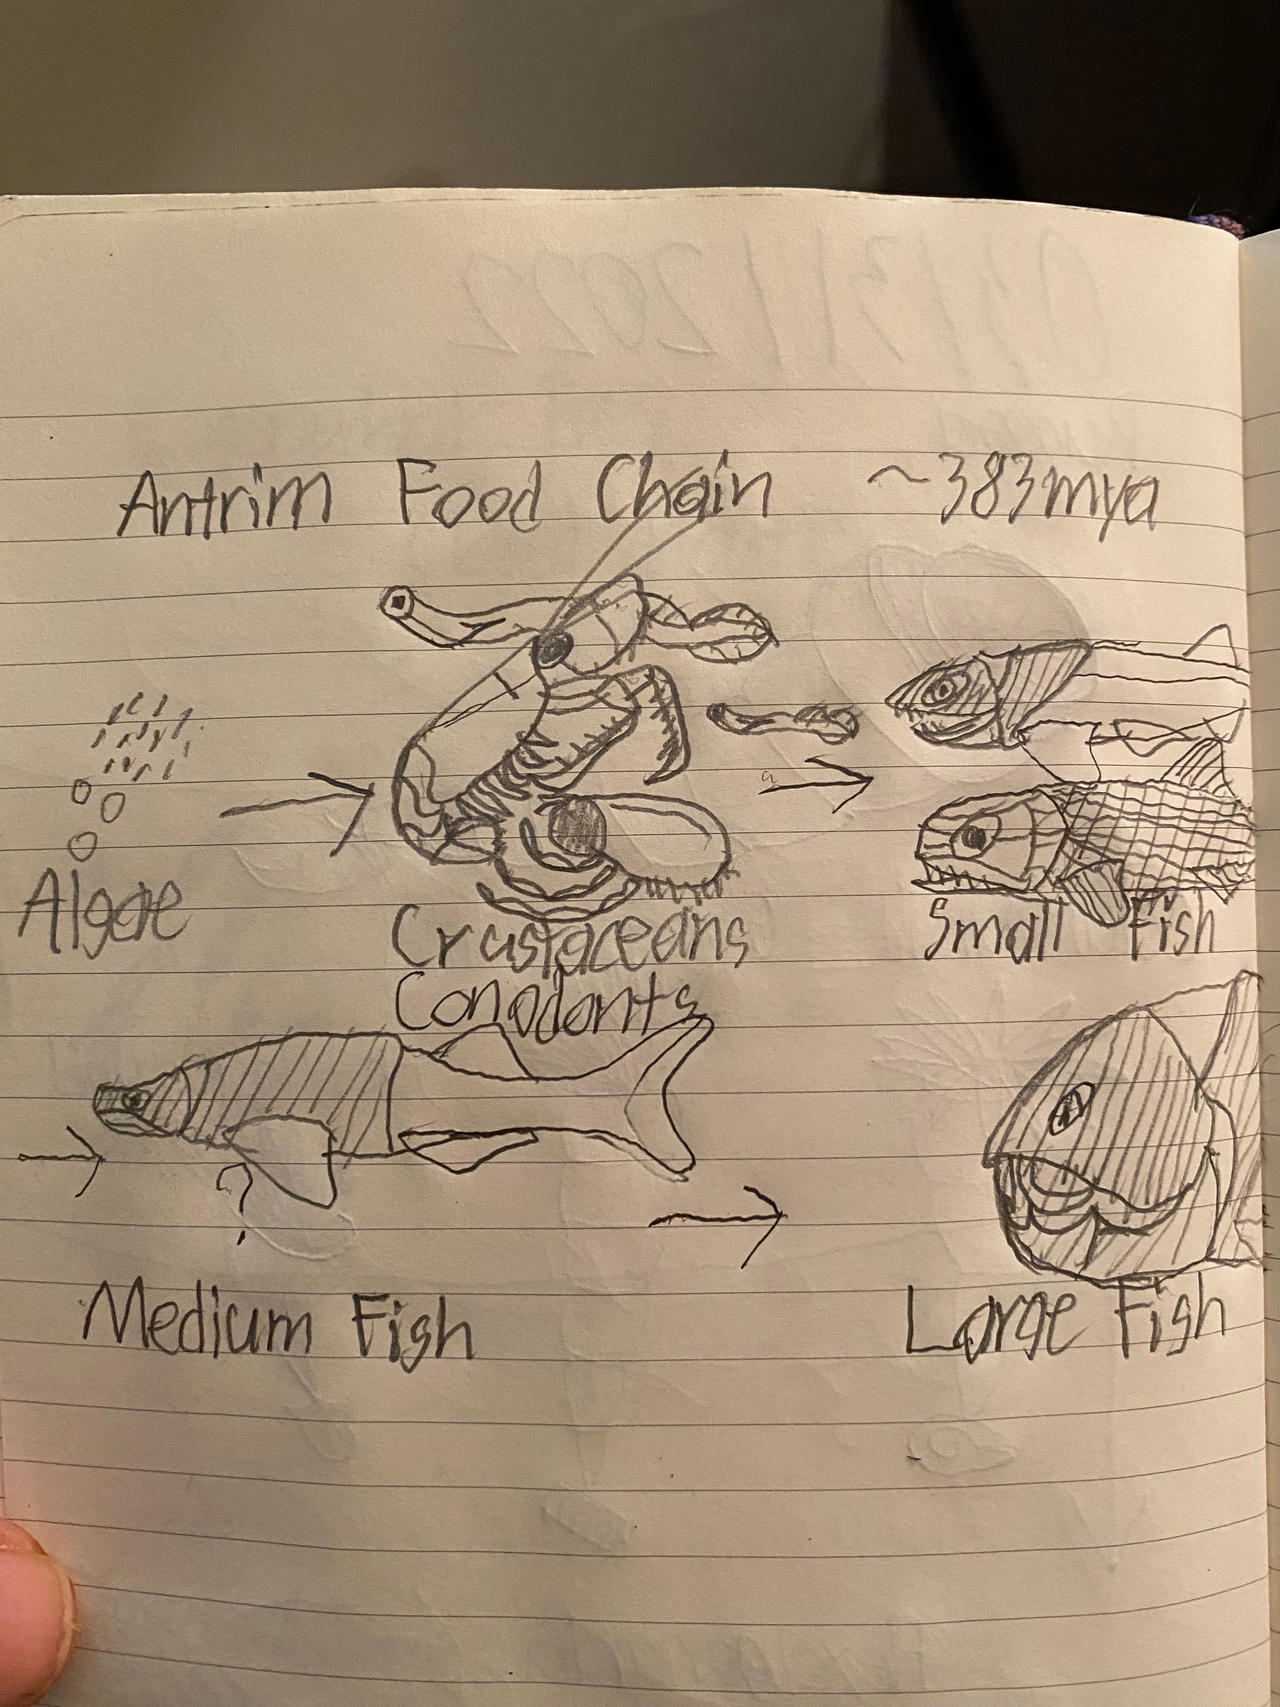 Antrim Food Chain ~383mya
Algae
Crustaceans
Conodonts
Small Fish
?
Medium Fish
Large Fish